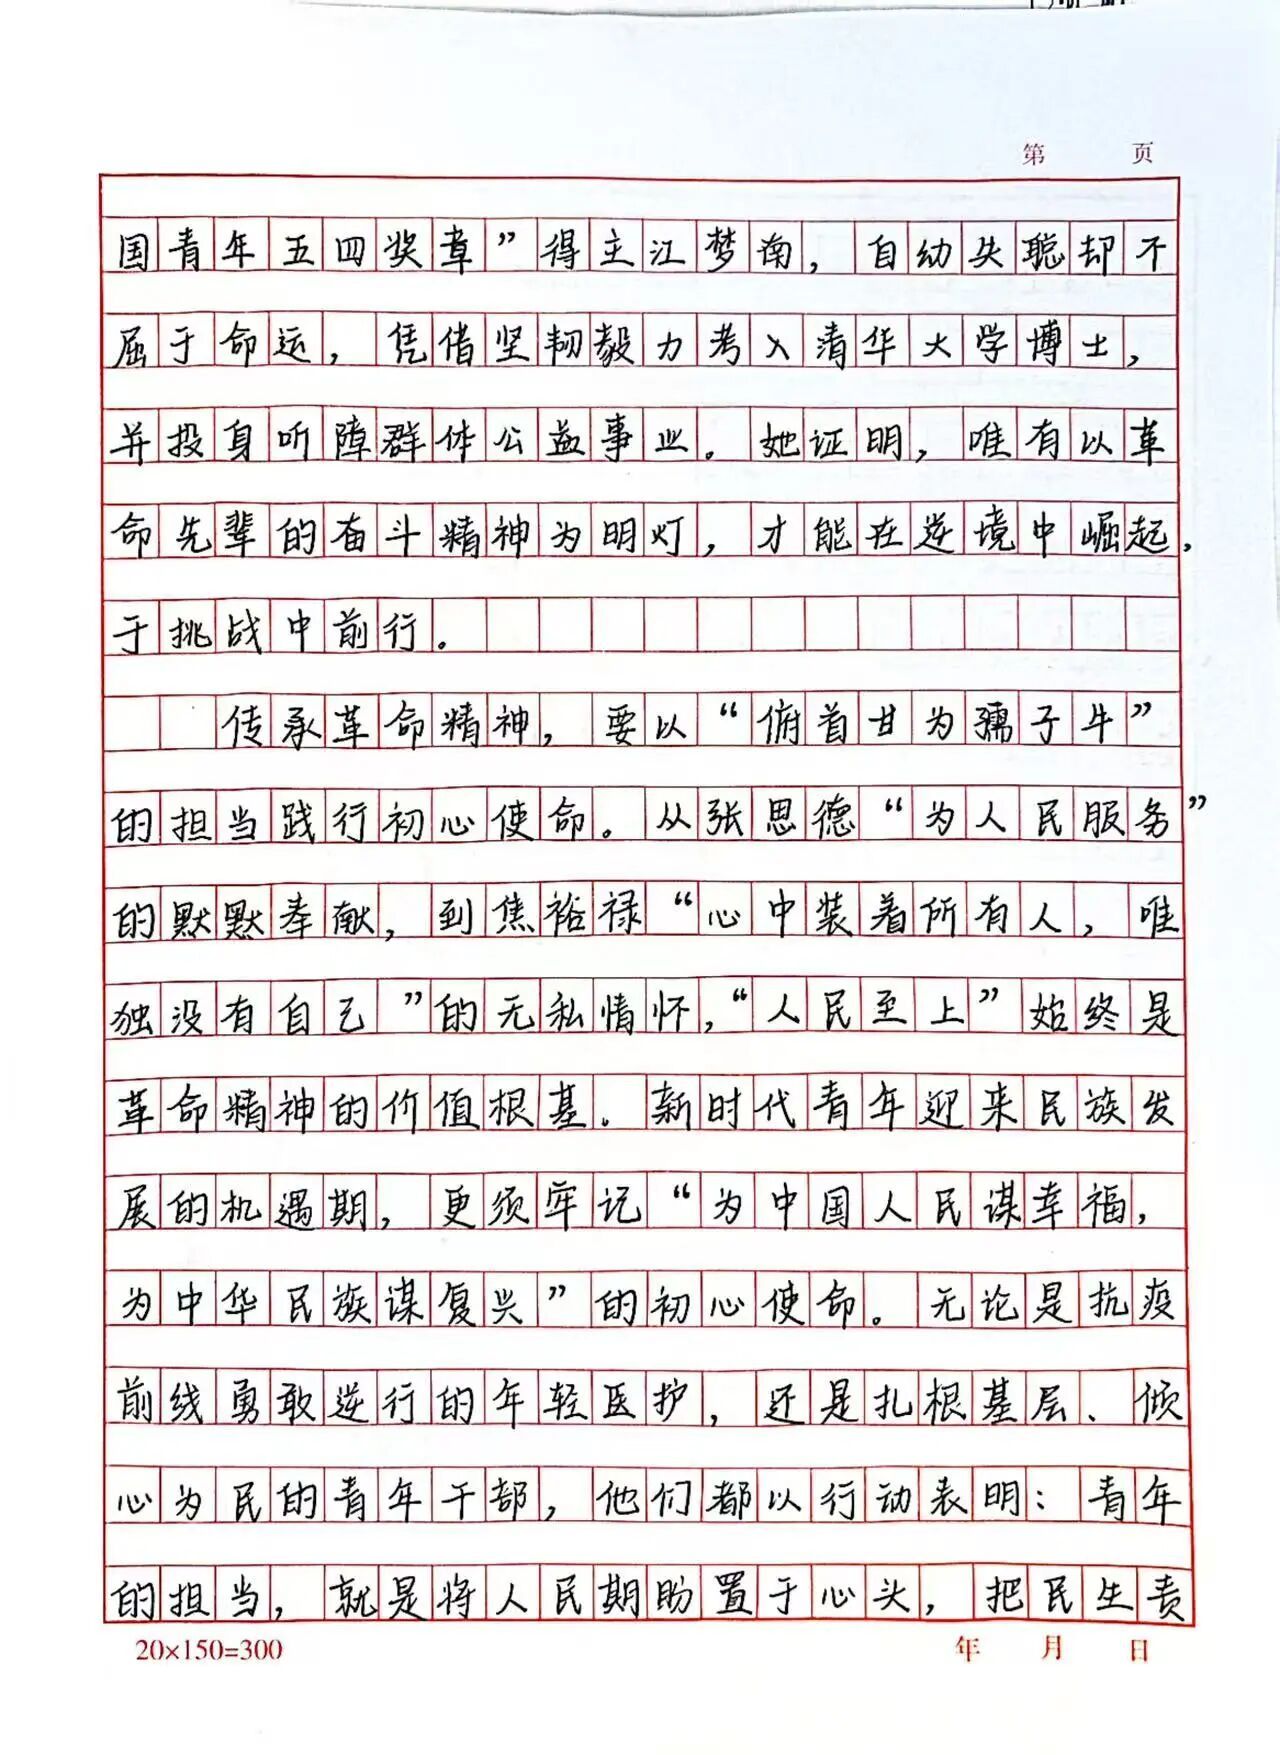 第 页
国青年五四奖章”得主江梦南，自幼失聪却不
屈于命运，凭借坚韧毅力考入清华大学博士，
并投身听障群体公益事业。她证明，唯有以革
命先辈的奋斗精神为明灯，才能在逆境中崛起，
于挑战中前行。
传承革命精神，要以“俯首甘为孺子牛”
的担当践行初心使命。从张思德“为人民服务”
的默默奉献，到焦裕禄“心中装着所有人，唯
独没有自己”的无私情怀，“人民至上”始终是
革命精神的价值根基。新时代青年迎来民族发
展的机遇期，更须牢记“为中国人民谋幸福，
为中华民族谋复兴”的初心使命。无论是抗疫
前线勇敢逆行的年轻医护，还是扎根基层、倾
心为民的青年干部，他们都以行动表明：青年
的担当，就是将人民期盼置于心头，把民生责
20×150=300 年 月 日